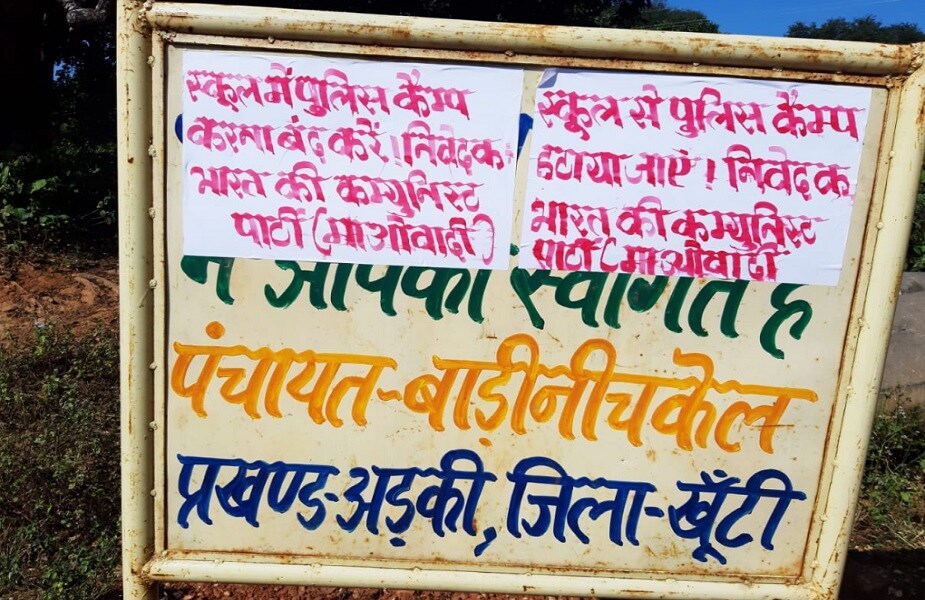 स्कूल में पुलिस कैम्प
करना बंद करें। निवेदक:
भारत की कम्युनिस्ट
पार्टी (माओवादी)
स्कूल से पुलिस कैम्प
हटाया जाएं। निवेदक
भारत की कम्युनिस्ट
पार्टी (माओवादी
में आपका स्वागत है
पंचायत-बाड़ीनीचकेल
प्रखण्ड-अड़की, जिला-खूँटी